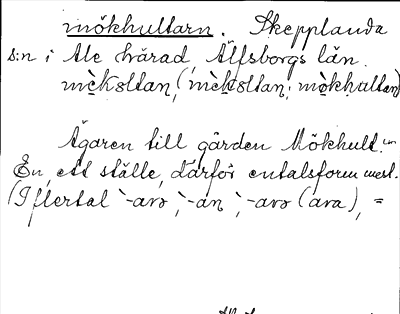 mökhultarn. Skepplanda
s:n i Ale härad, Älfsborgs län.
mèksltan, (mèksltan; mòkhultan)
Ägaren till gården Mökhult.
En, ett ställe, därför entalsform mest.
(I flertal `-arə, `-an, `-arə (ara), =